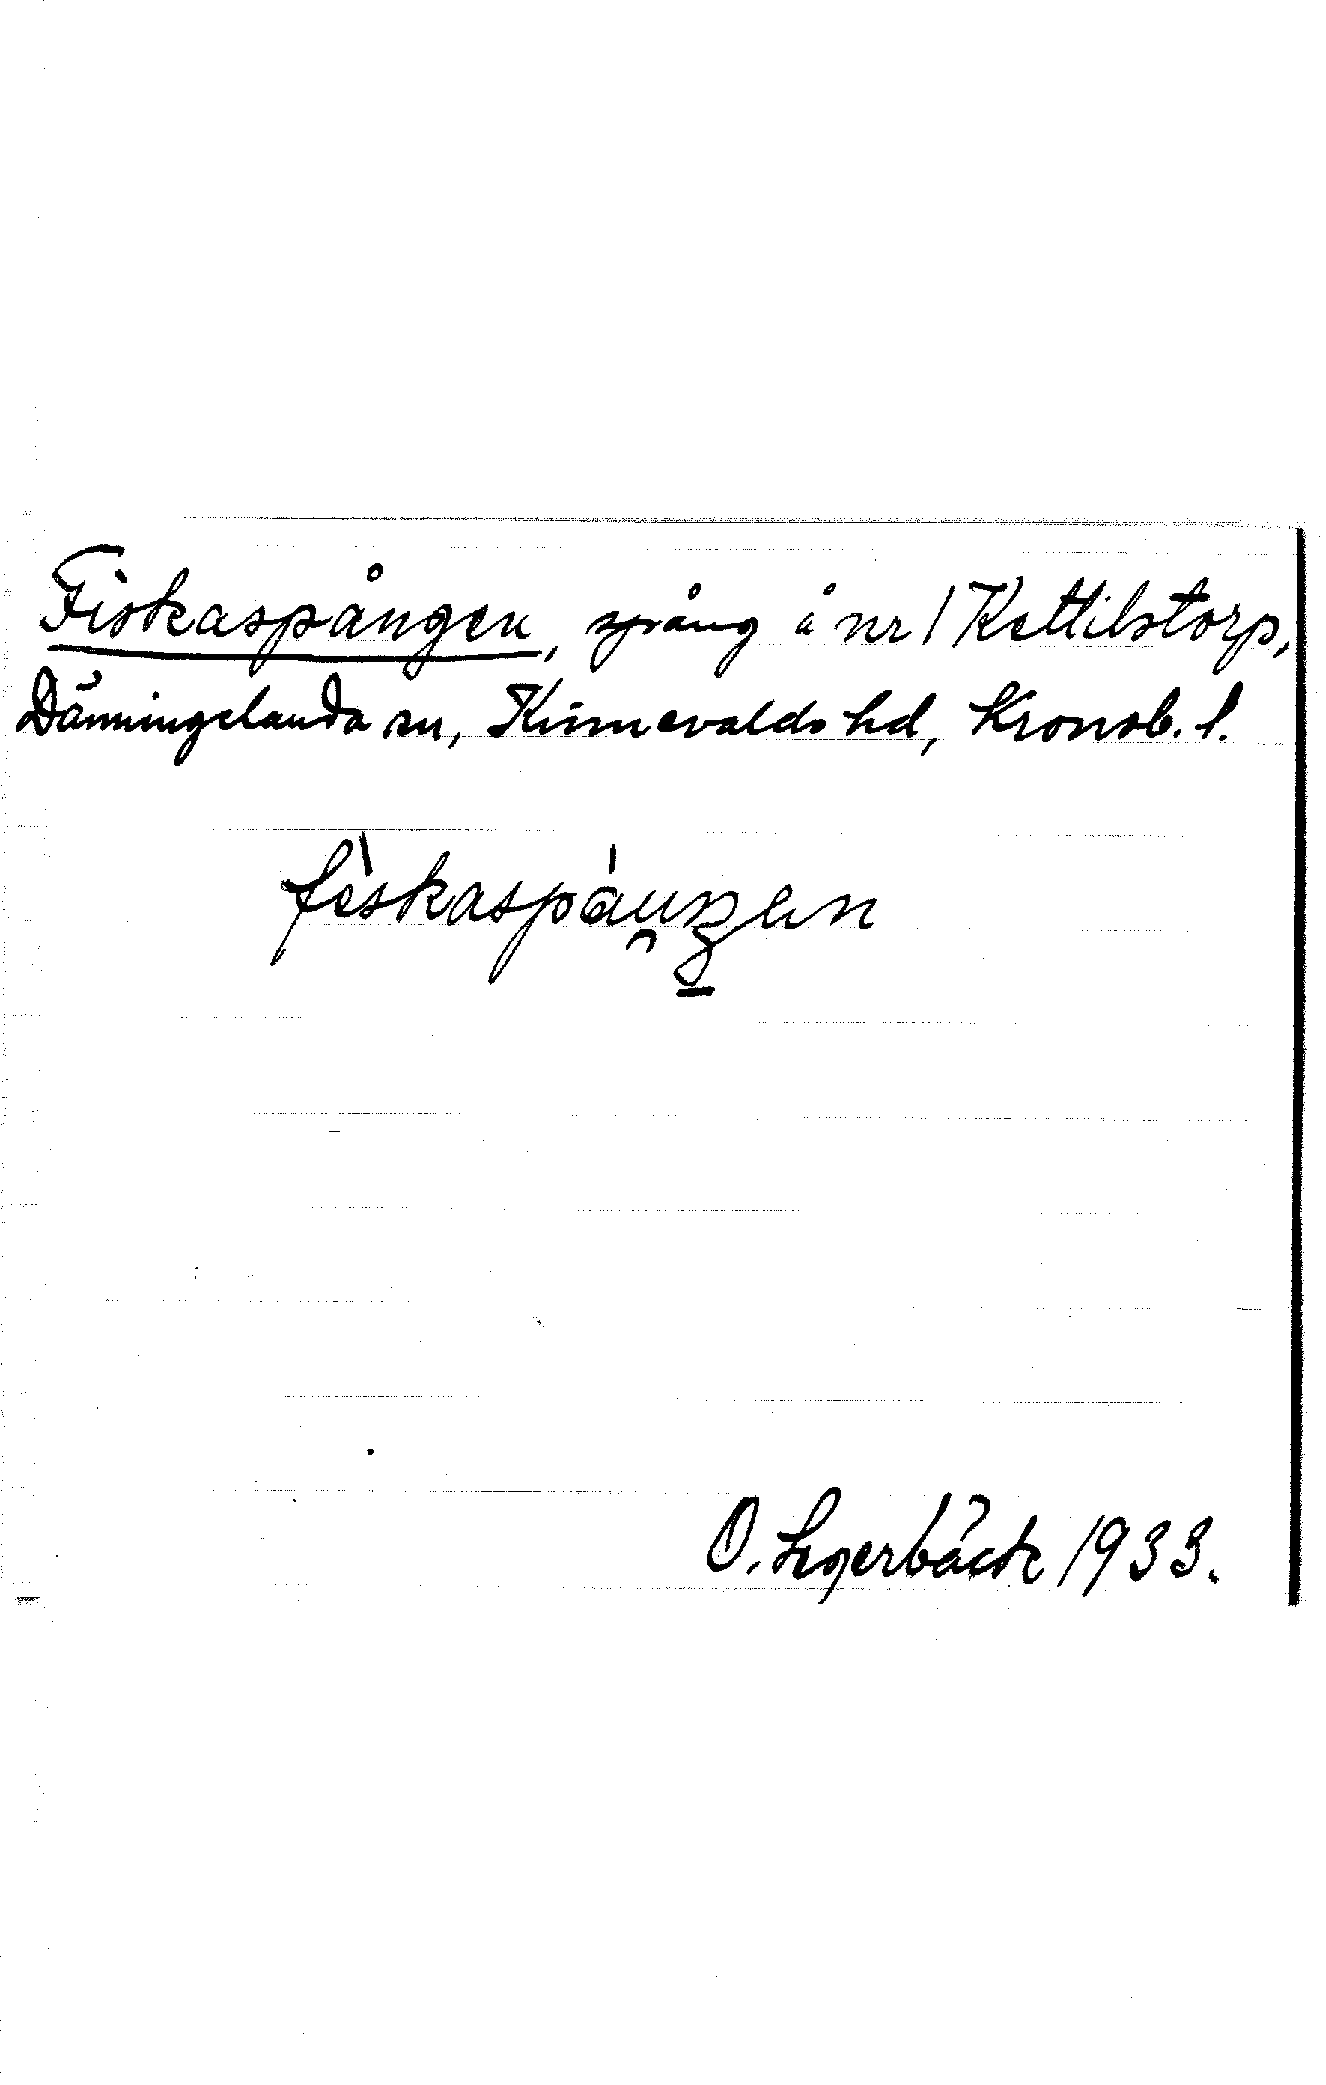 Fiskaspången, spång å nr 1 Kettilstorp,
Dänningelanda sn, Kinnevalds hd, Kronob. l.
fèskaspáu̯ŋen
O. Legerbäck 1933.